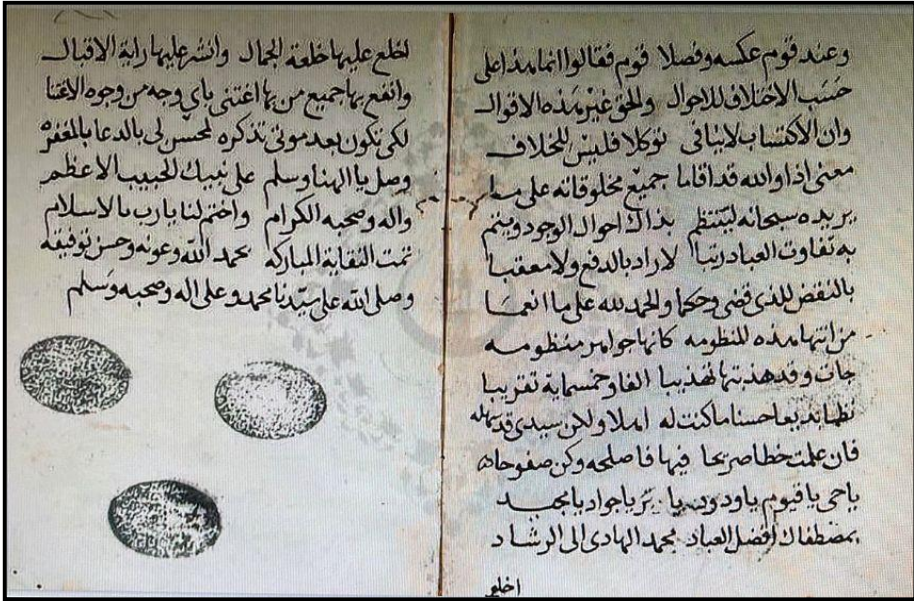 وعند قوم عكسه وفصلا قوم فقالوا انما هذا على
حسب الاختلاف للاحوال والحق غير هذه الاقوال
وان الاكتساب لا ينافى توكلا فليس للخلاف
معنى اذا والله قد اقاما جميع مخلوقاته على ما
يريده سبحانه لينتظم بذاك احوال الوجود ويتم
به تفاوت العباد رتبا لا راد بالدفع ولا معقبا
بالنقض للذى قضى وحكما والحمد لله على ما انعما
من انتها هذه المنظومه كانها جواهر منظومه
جات وقد هذبتها تهذيبا الفا وخمسماية تقريبا
نظما بديعا حسنا ما كنت له املا ولكن سيدى قد سهله
فان علمت خطا صريحا فيها فاصلحه وكن صفوحا
ياحى ياقيوم ياودود يا بر ياجواد يامجيد
بمصطفاك افضل العباد محمد الهادى الى الرشاد
اخلع
اخلع عليها خلعة الجمال وانشر عليها راية الاقبال
وانفع بها جميع من بها اغتنى باي وجه من وجوه الاغتنا
لكى تكون بعد موتى تذكره لمحسن لى بالدعا بالمغفره
وصل يا الهنا وسلم على نبيك الحبيب الاعظم
واله وصحبه الكرام واختم لنا يارب بالاسلام
تمت النقاية المباركه بحمد الله وعونه وحسن توفيقه
وصلى الله على سيدنا محمد وعلى اله وصحبه وسلم